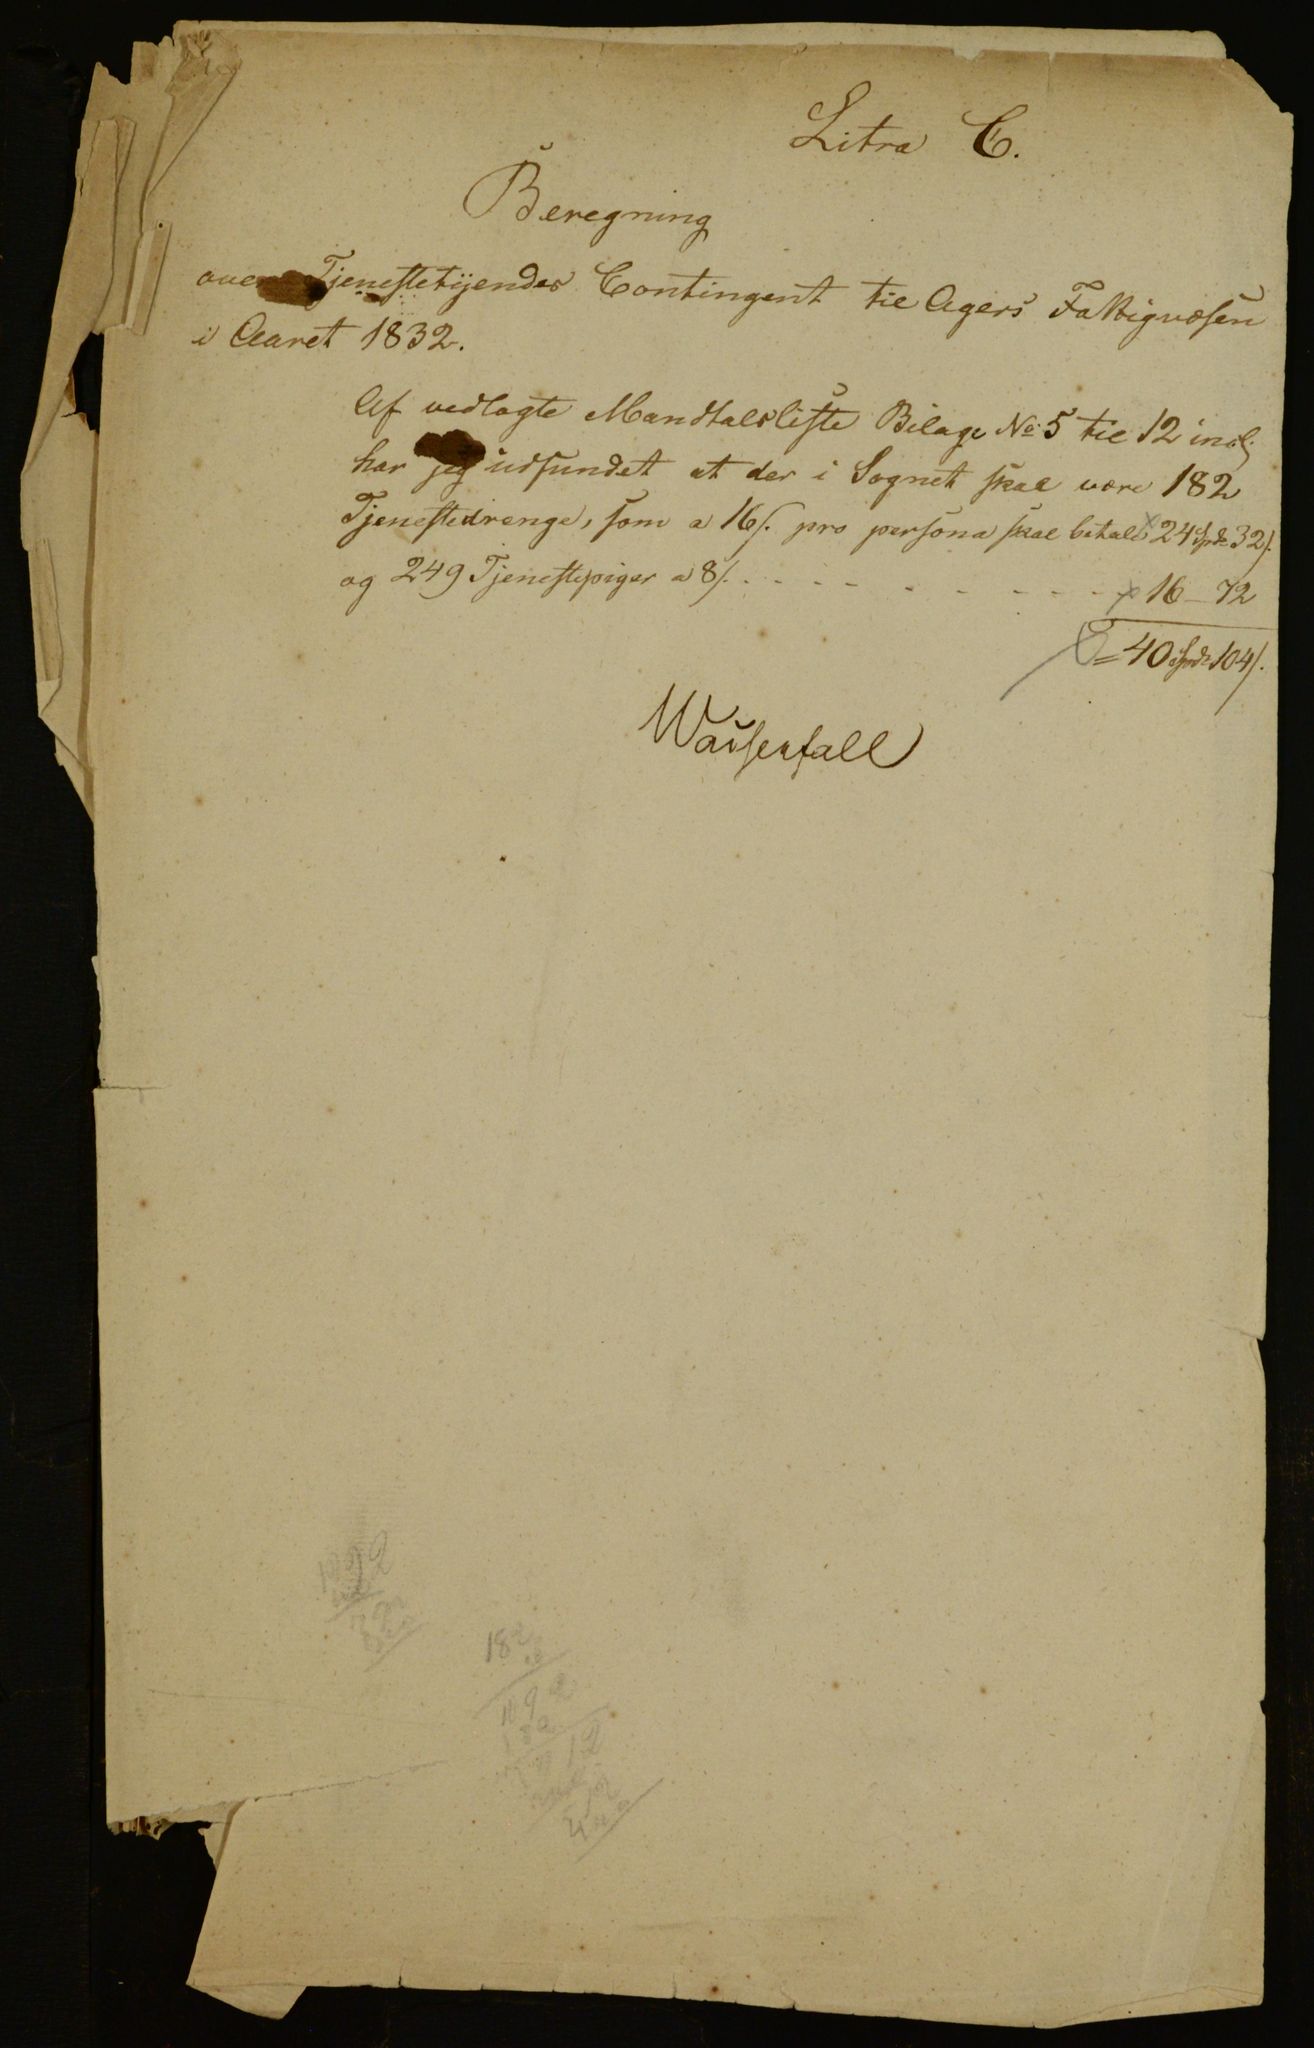 Litra C.
Beregning
over Tjenestetyendes Contingent til Agers Fattigvæsen
i Aaret 1832.
Af vedlagte Mandtalsliste Bilage No 5 til 12 incl.
har jeg udfundet at der i Sognet skal være 182
Tjenestedrenge, som a 16 s. pro persona skal betale 24 Spd 32 s.
og 249 Tjenestepiger a 8 s. - - - - - - - - - 16 - 72
= 40 Spd 104 s.
Wausenfall
182